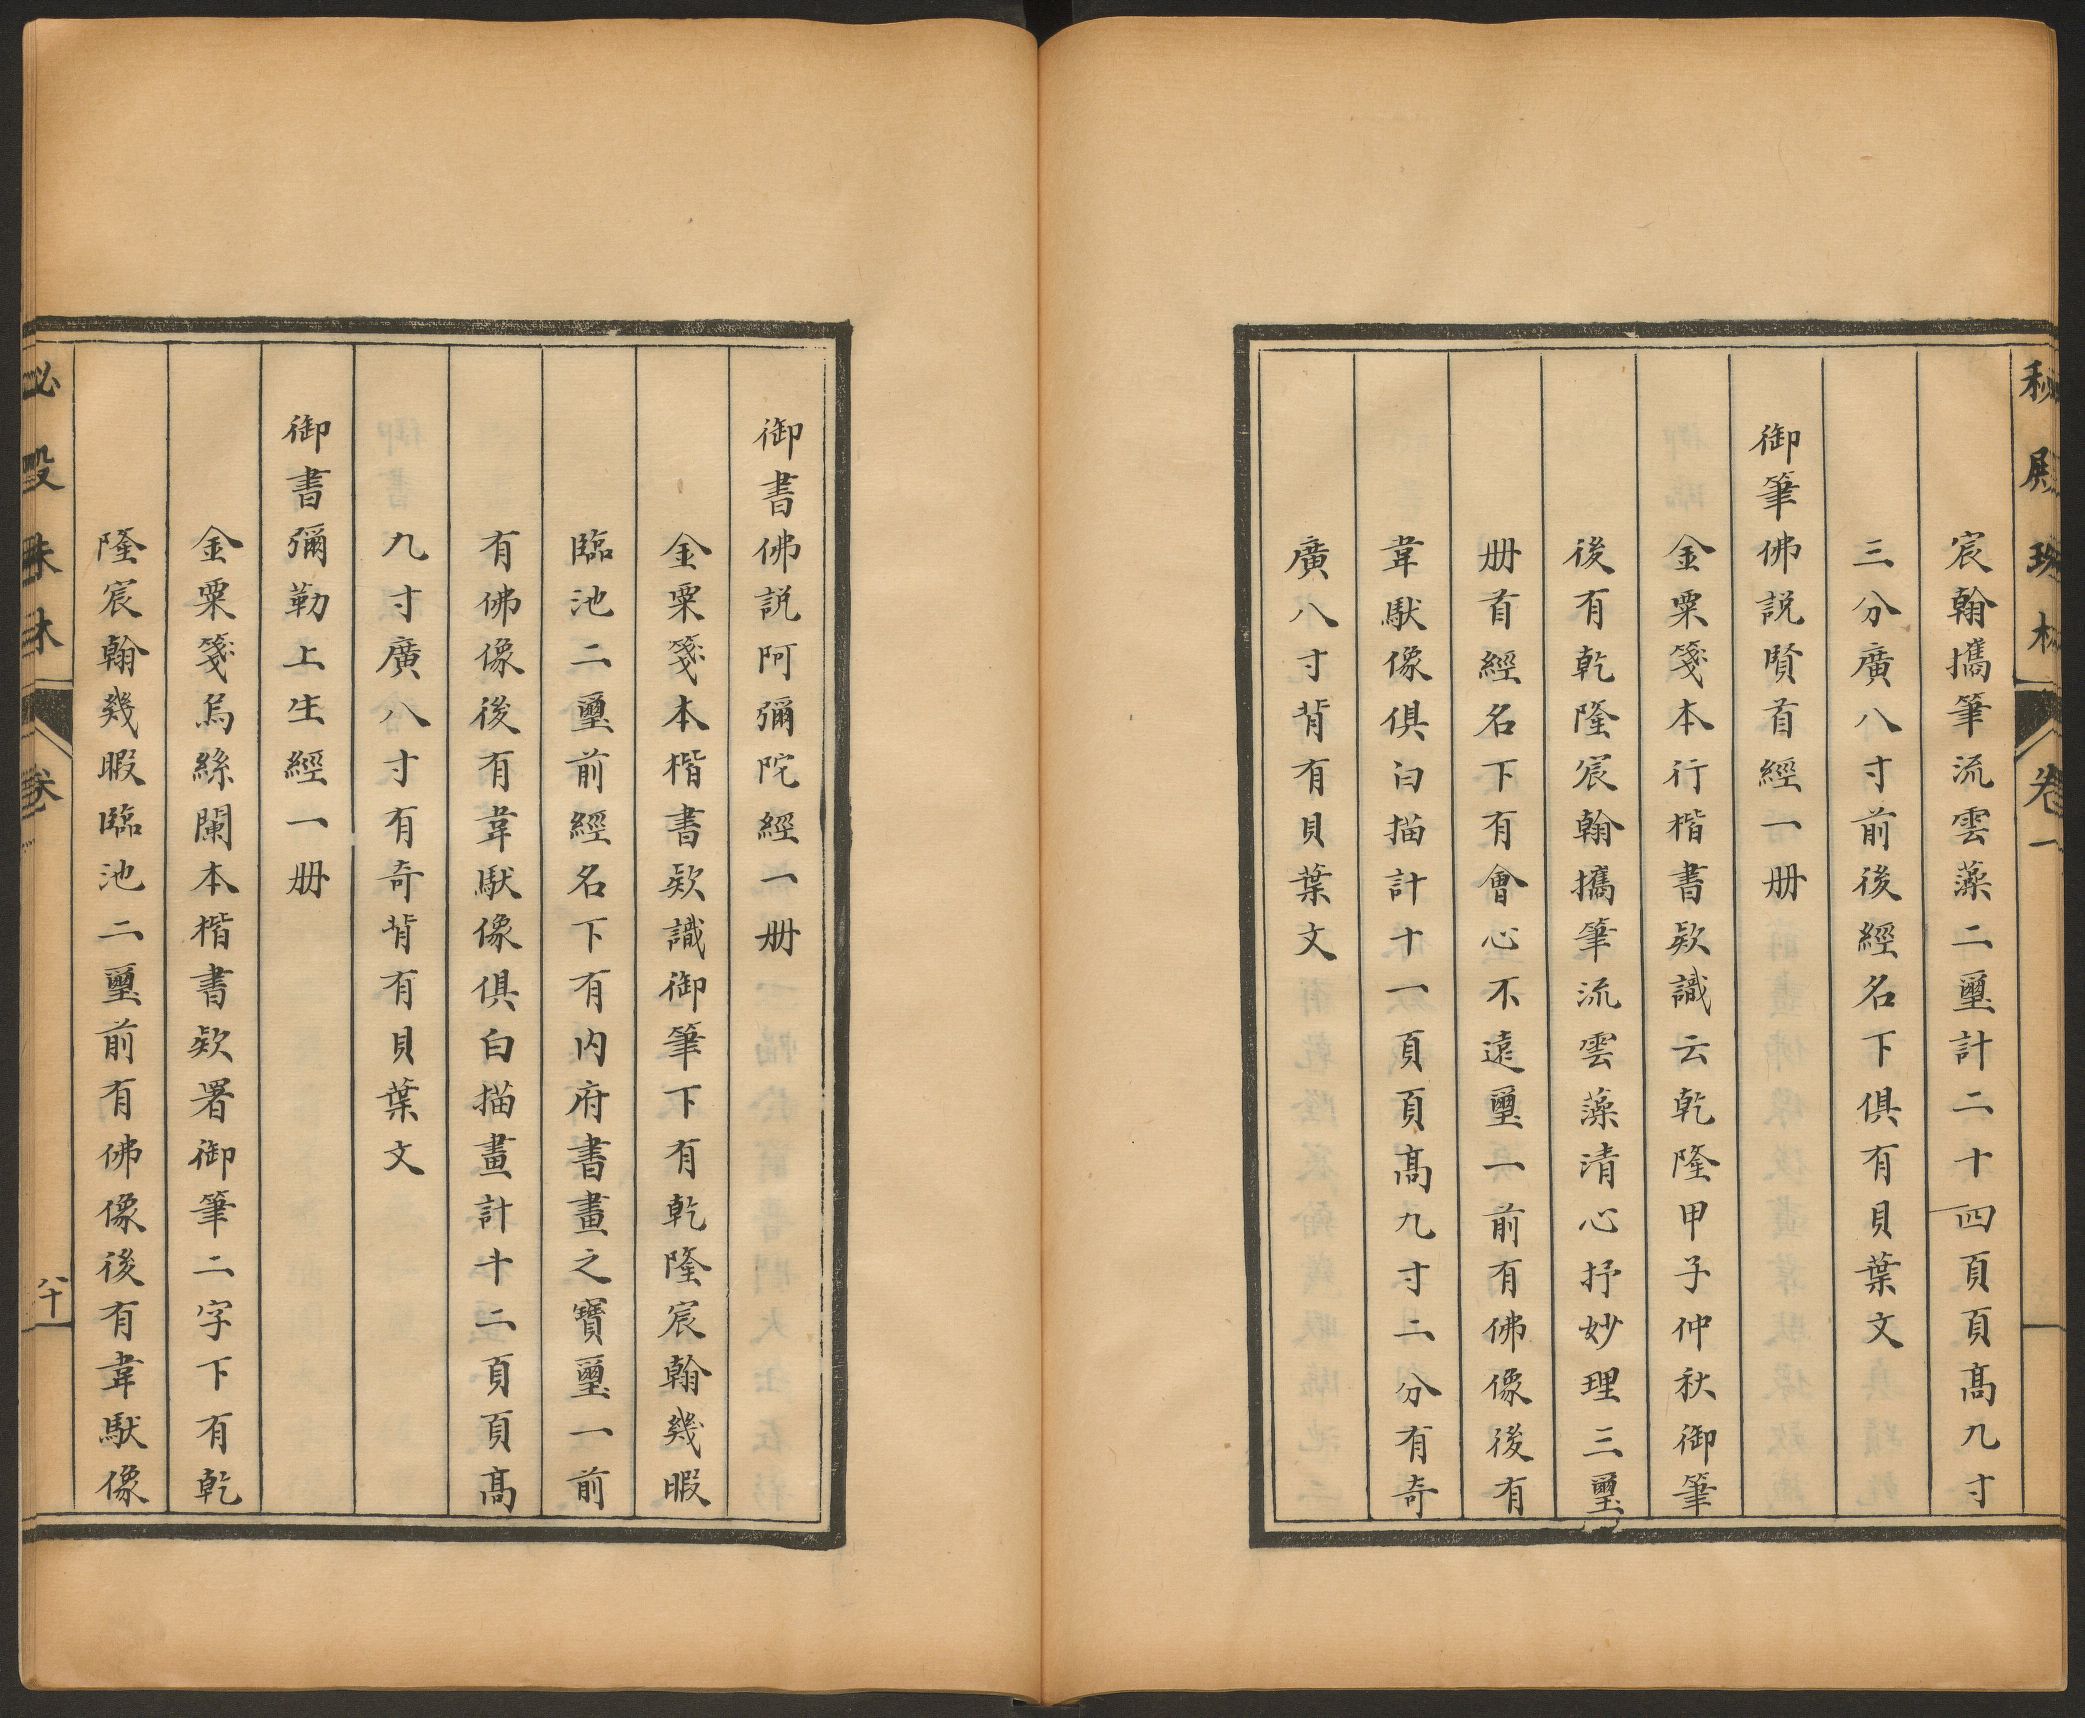 秘殿珠林 卷一
宸翰攜筆流雲藻二璽計二十四頁頁高九寸
三分廣八寸前後經名下俱有貝葉文
御筆佛説賢首經一册
金粟箋本行楷書欵識云乾隆甲子仲秋御筆
後有乾隆宸翰攜筆流雲藻清心抒妙理三璽
册首經名下有會心不遠璽一前有佛像後有
韋馱像俱白描計十一頁頁高九寸二分有奇
廣八寸背有貝葉文
御書佛説阿彌陀經一册
金粟箋本楷書欵識御筆下有乾隆宸翰幾暇
臨池二璽前經名下有内府書畫之寶璽一前
有佛像後有韋馱像俱白描畫計十二頁頁高
九寸廣八寸有奇背有貝葉文
御書彌勒上生經一册
金粟箋烏絲闌本楷書欵署御筆二字下有乾
隆宸翰幾暇臨池二璽前有佛像後有韋馱像